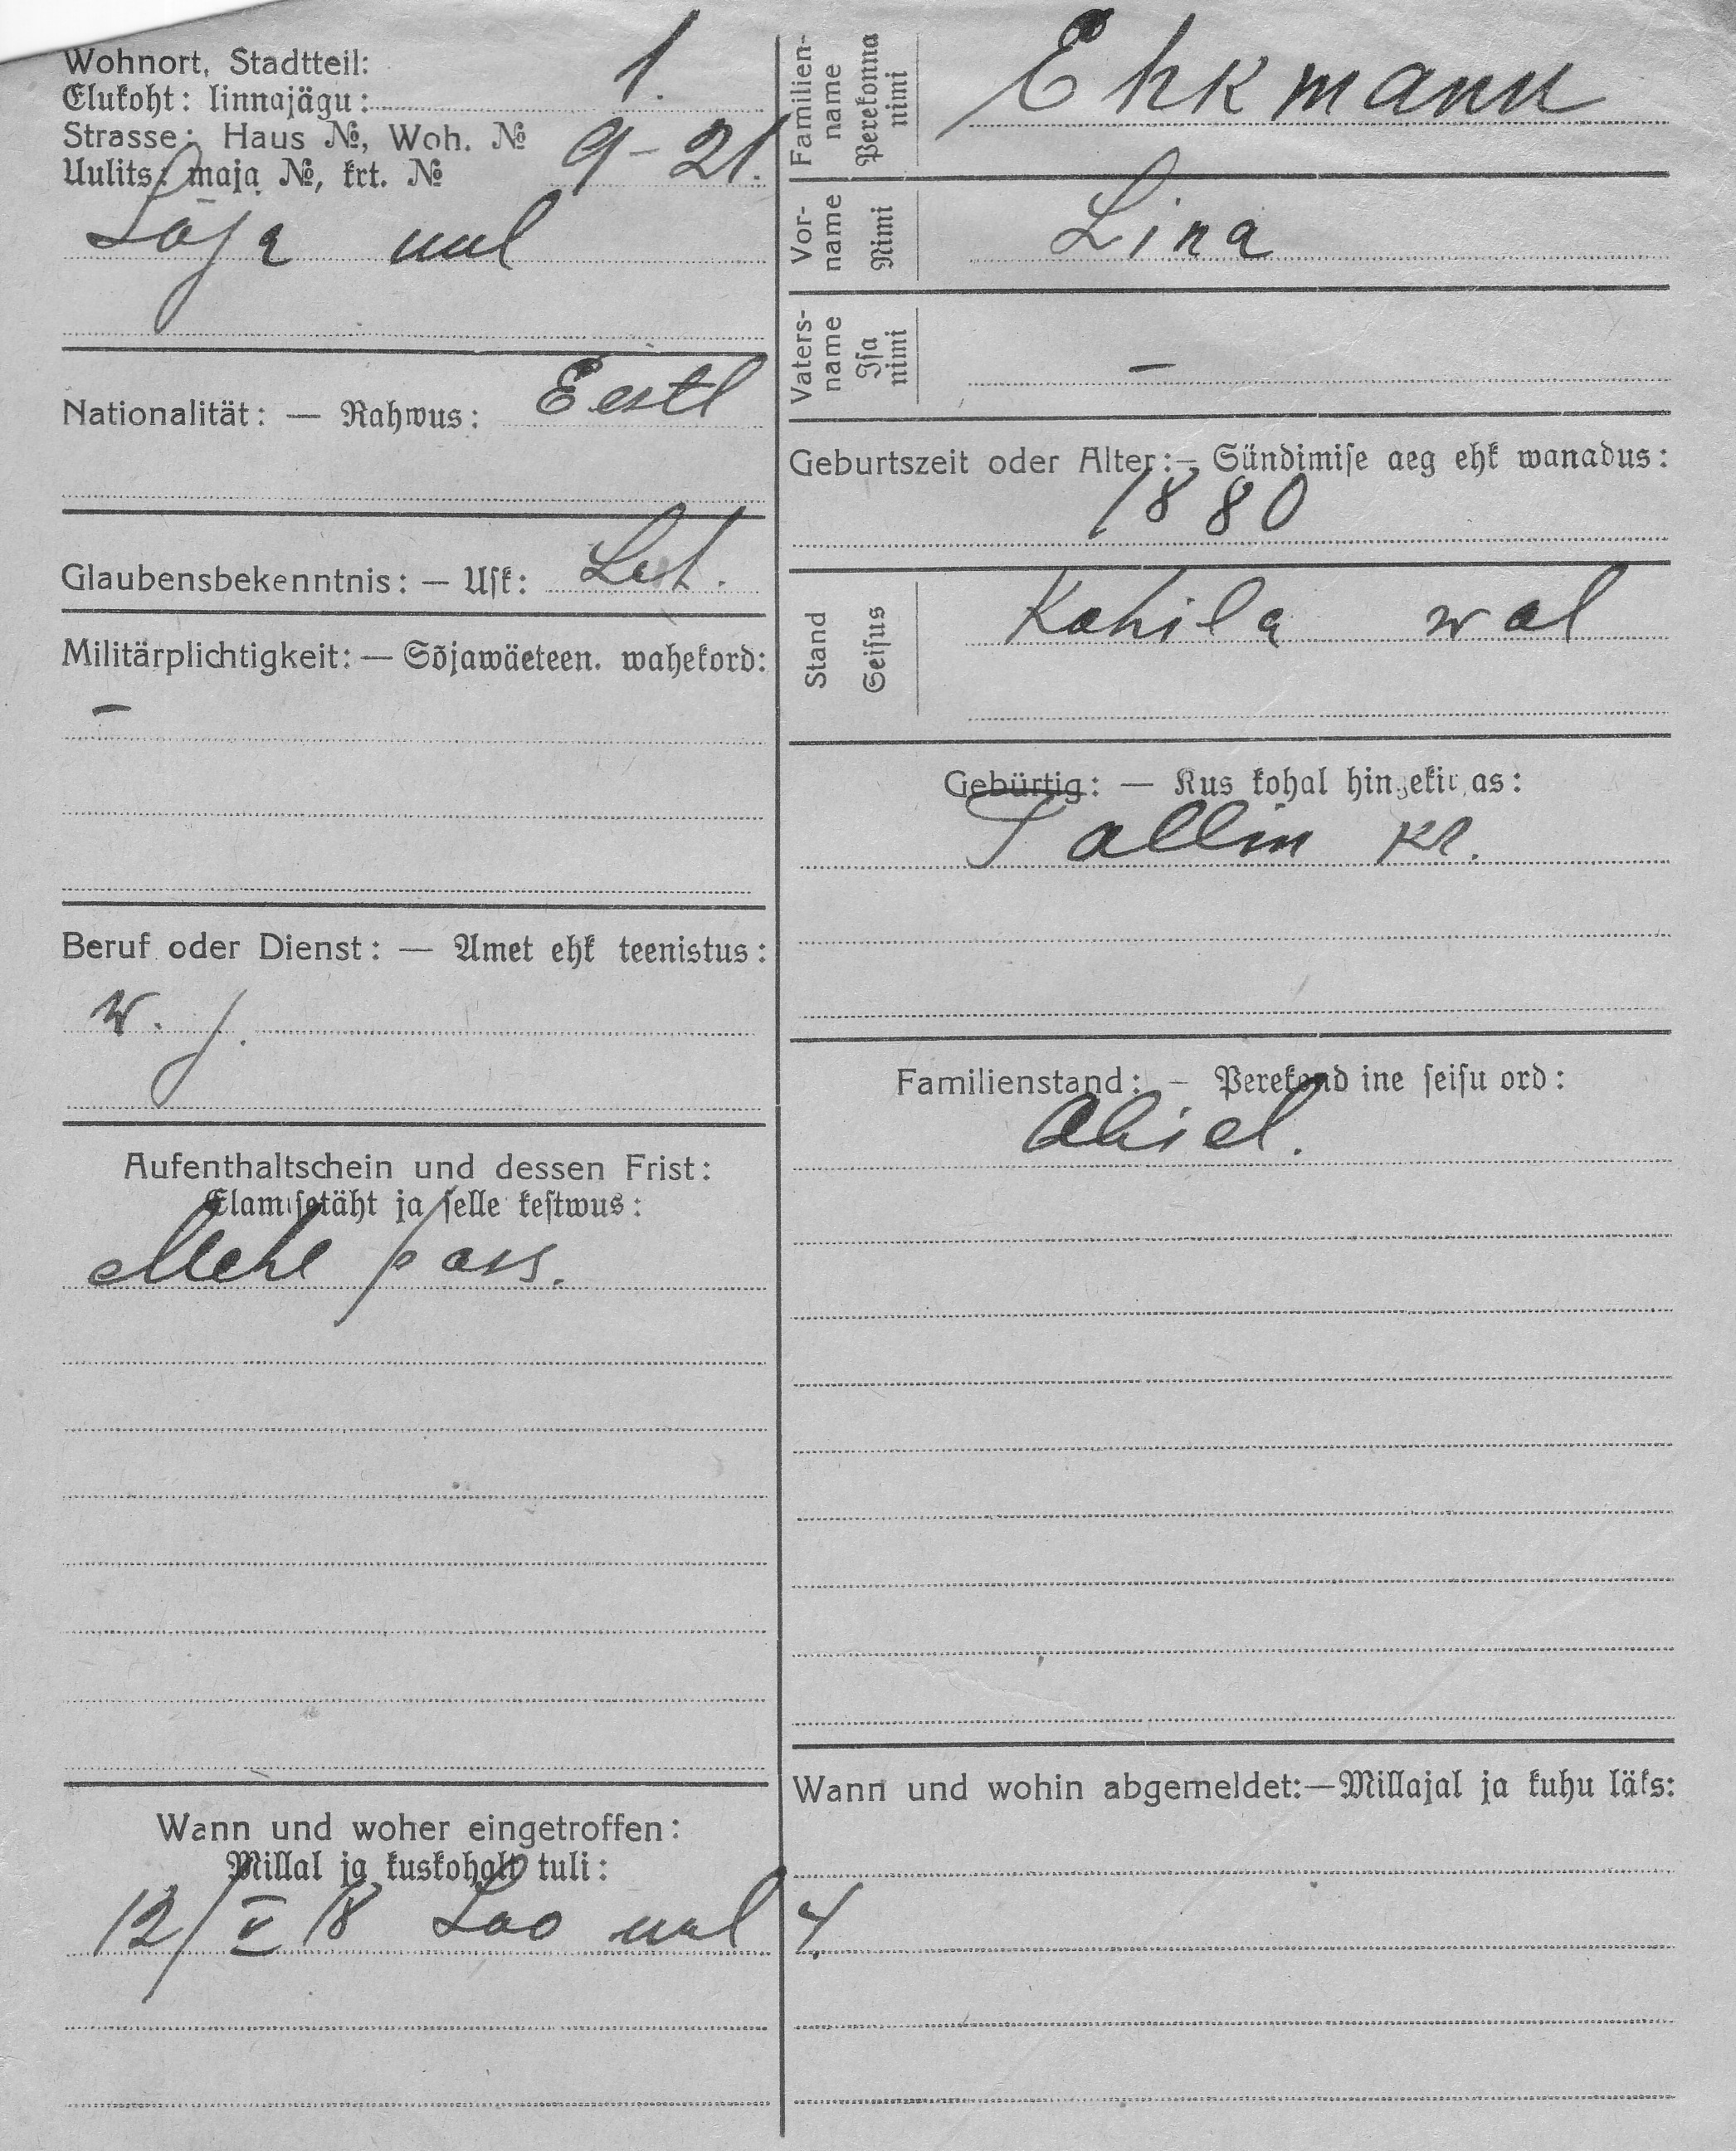 Wohnort, Stadtteil:
Elukoht: linnajägu: 1.
Strasse: Haus №, Woh. №
Uulits: maja №, krt. № 9-21.
Sõja uul
Nationalität: — Rahwus: Eestl
Glaubensbekenntnis: — Usk: Lut.
Militärplichtigkeit: — Sõjawäeteen. wahekord:
—
Beruf oder Dienst: — Amet ehk teenistus:
w. j.
Aufenthaltschein und dessen Frist:
Elamisetäht ja selle kestwus:
Mehe pass.
Wann und woher eingetroffen:
Millal ja kuskohalt tuli:
12/V 18 Soo uul 4.
Familien-name
Perekonna nimi
Ehkmann
Vor-name
Nimi
Lina
Vaters-name
Isa nimi
—
Geburtszeit oder Alter: — Sündimise aeg ehk wanadus:
1880
Stand
Seisus
Kohila wal
Gebürtig: — Kus kohal hingekir as:
Tallin kr.
Familienstand: — Perekond ine seisu ord:
Abiel.
Wann und wohin abgemeldet:—Millajal ja kuhu läks: